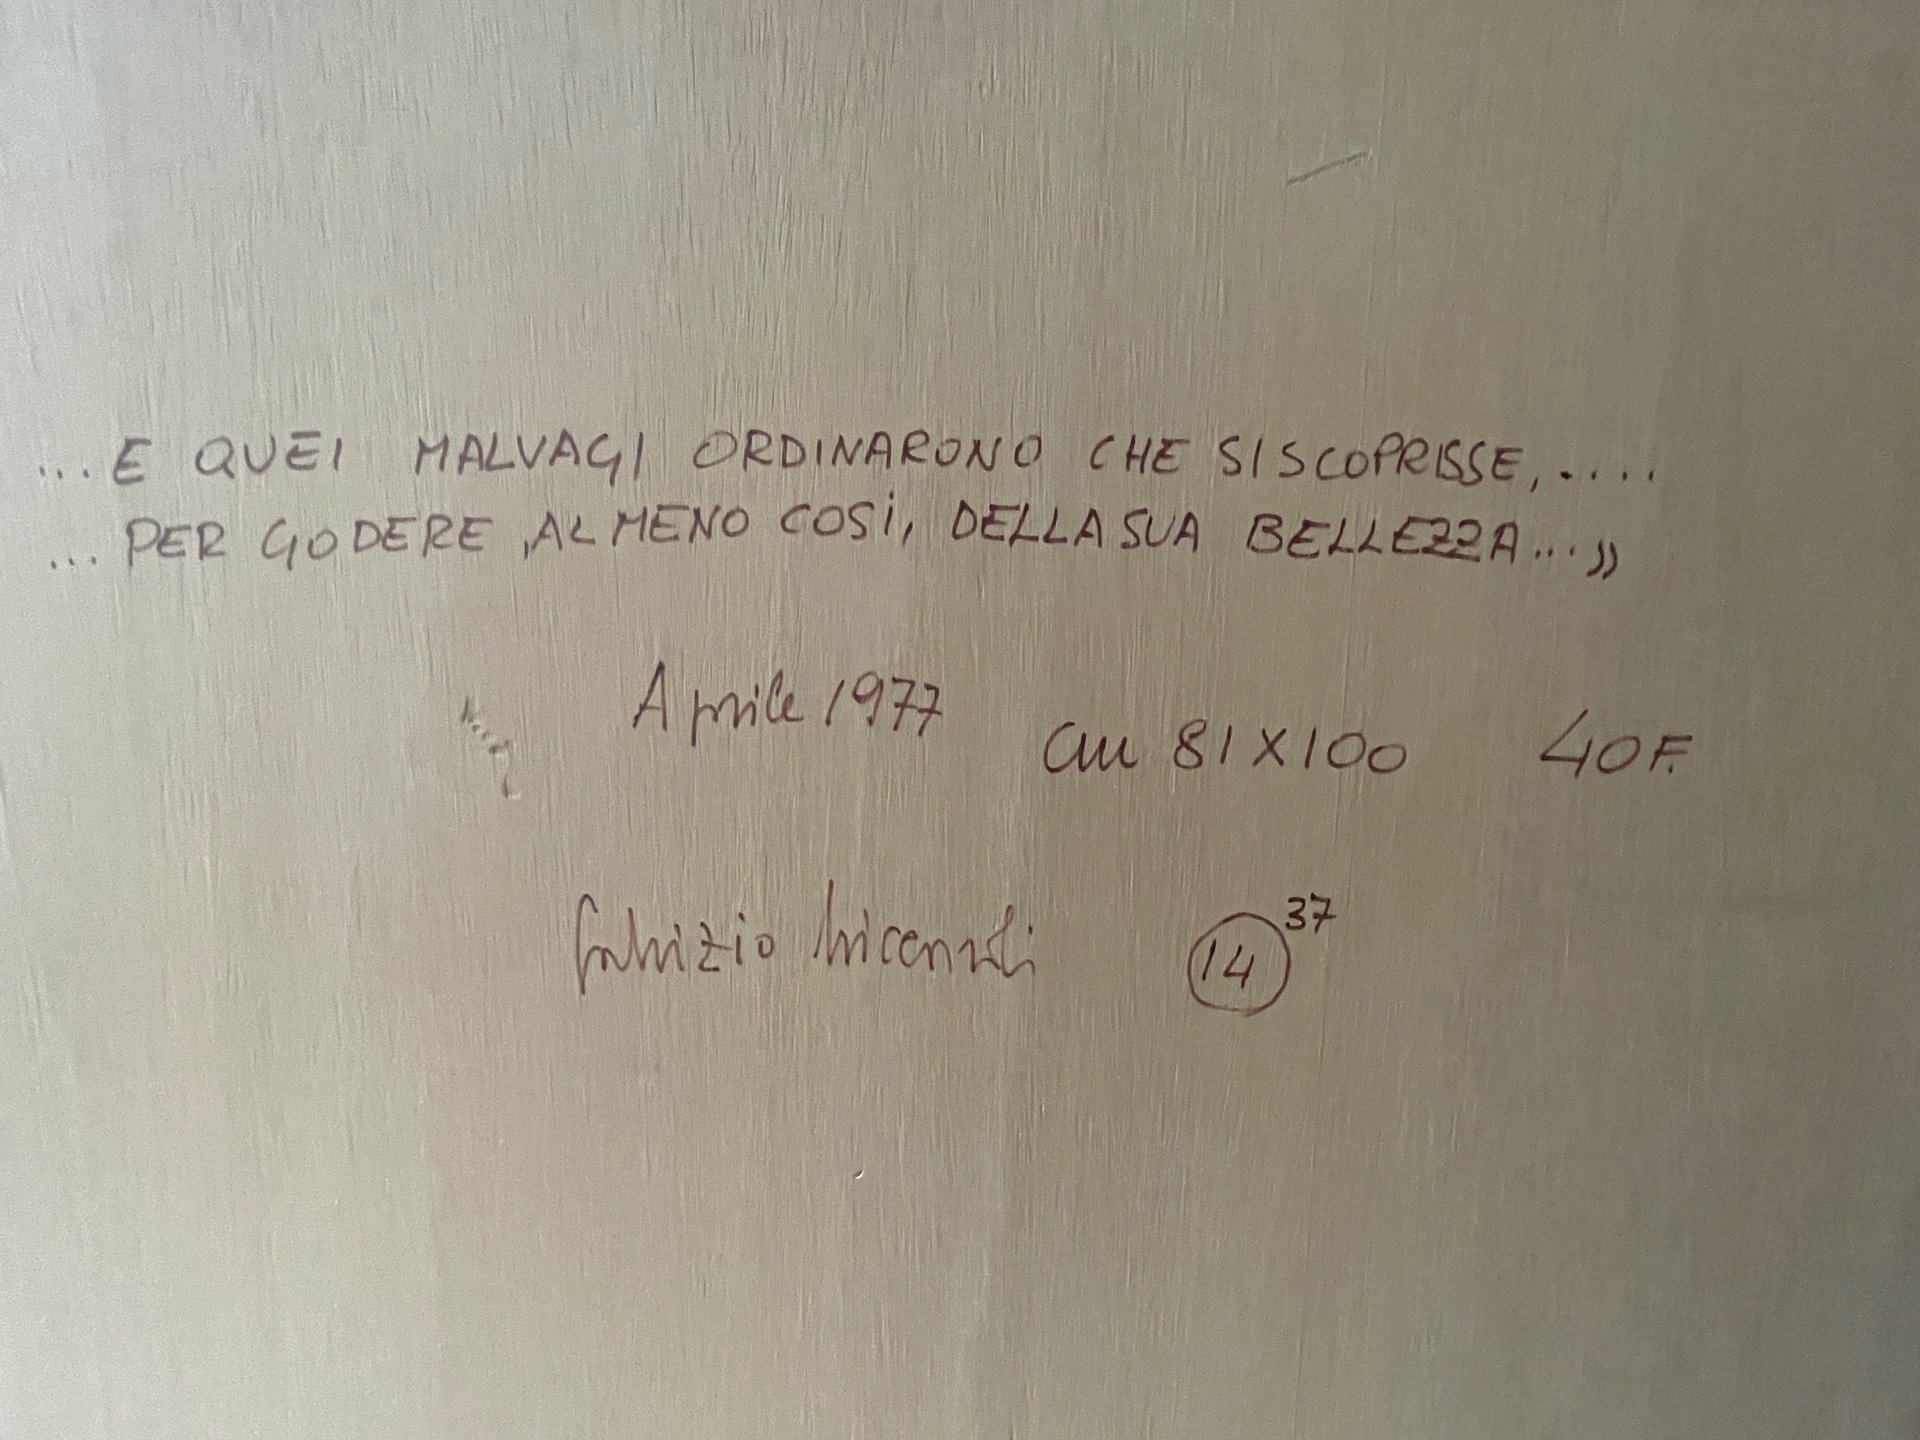 ...E QUEI MALVAGI ORDINARONO CHE SI SCOPRISSE,....
...PER GODERE, ALMENO COSÌ, DELLA SUA BELLEZZA...»
Aprile 1977
cm 81X100 40F.
fabrizio
14 37